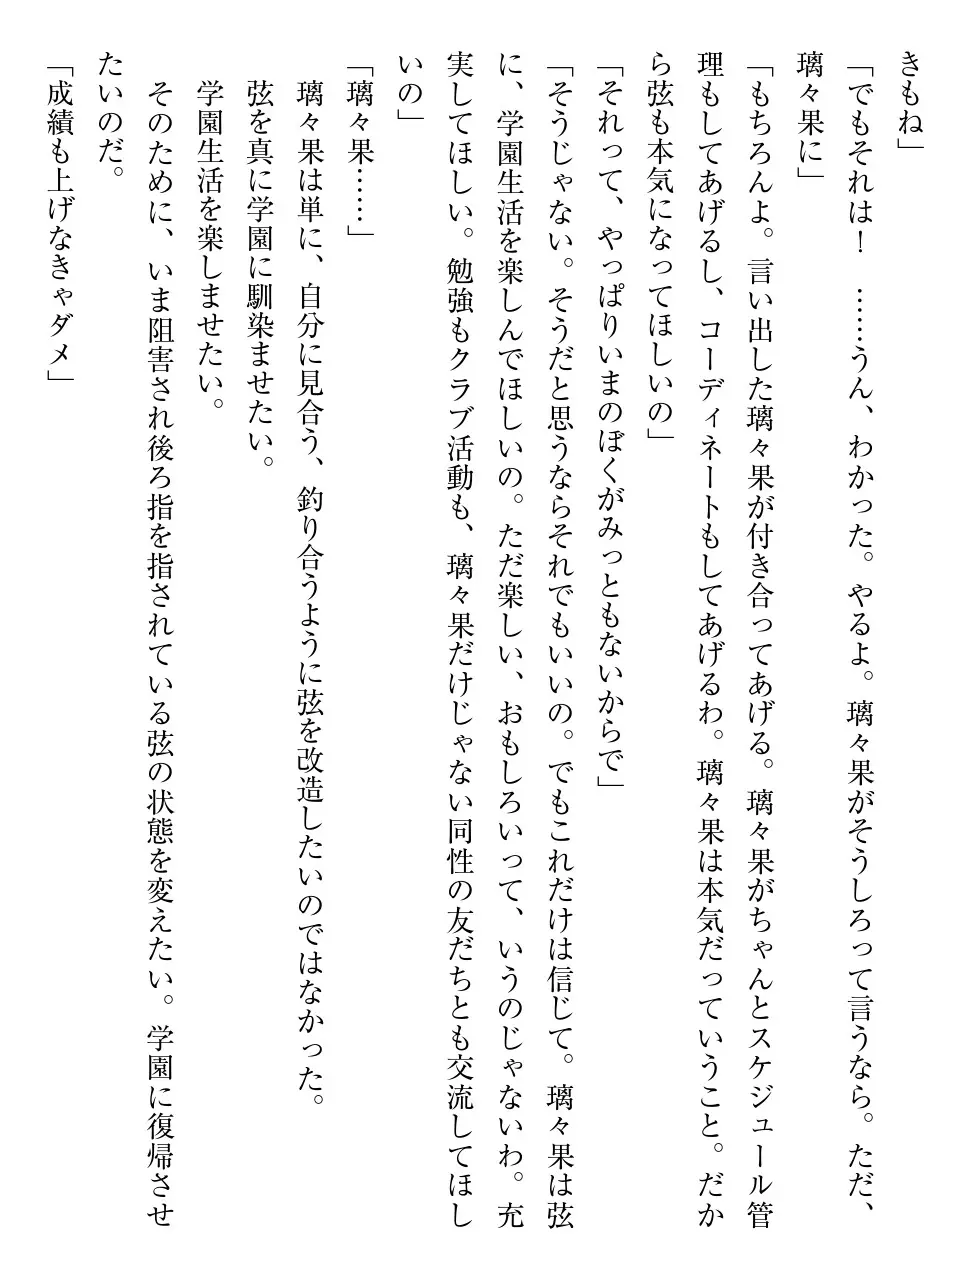 きもね」
「でもそれは！　……うん、わかった。やるよ。璃々果がそうしろって言うなら。ただ、
璃々果に」
「もちろんよ。言い出した璃々果が付き合ってあげる。璃々果がちゃんとスケジュール管
理もしてあげるし、コーディネートもしてあげるわ。璃々果は本気だっていうこと。だか
ら弦も本気になってほしいの」
「それって、やっぱりいまのぼくがみっともないからで」
「そうじゃない。そうだと思うならそれでもいいの。でもこれだけは信じて。璃々果は弦
に、学園生活を楽しんでほしいの。ただ楽しい、おもしろいって、いうのじゃないわ。充
実してほしい。勉強もクラブ活動も、璃々果だけじゃない同性の友だちとも交流してほし
いの」
「璃々果……」
　璃々果は単に、自分に見合う、釣り合うように弦を改造したいのではなかった。
　弦を真に学園に馴染ませたい。
　学園生活を楽しませたい。
　そのために、いま阻害され後ろ指を指されている弦の状態を変えたい。学園に復帰させ
たいのだ。
「成績も上げなきゃダメ」